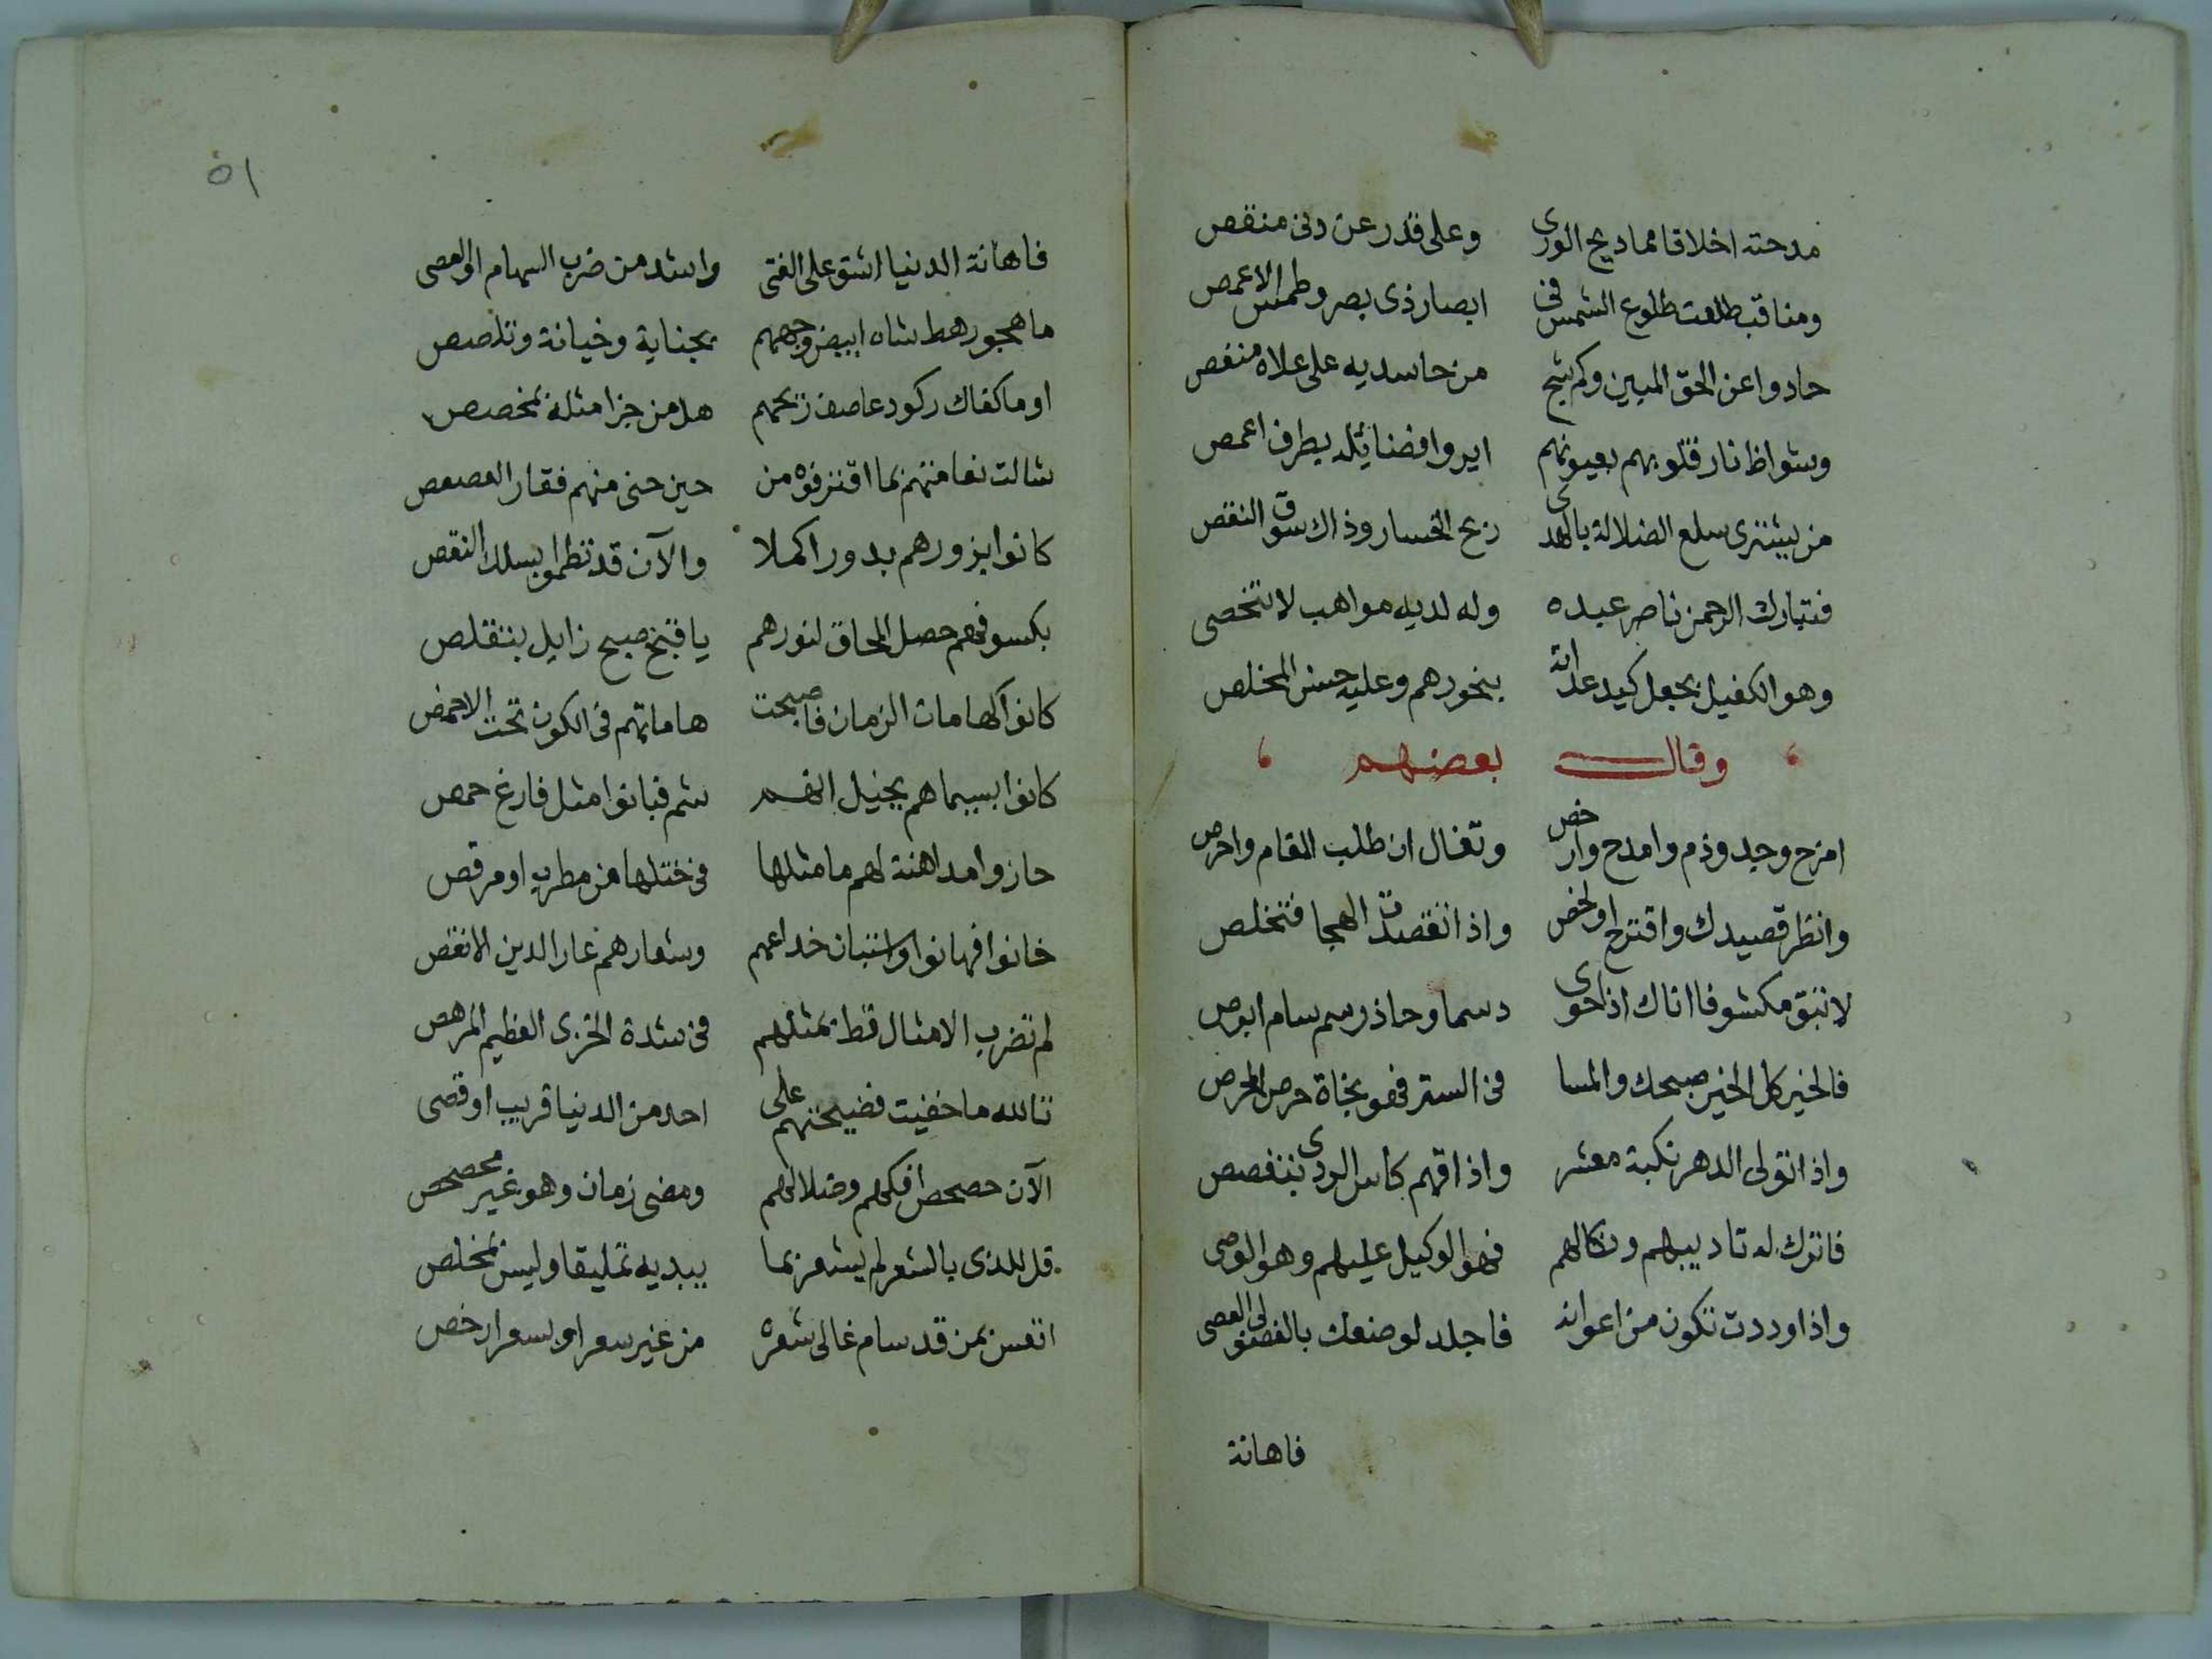 مدحته اخلاقا مماديح الورى وعلى قدر عن دنى منقص
ومناقب طلعت طلوع الشمس فى ابصار ذى بصر وطمس الاعمص
حادوا عن الحق المبين وكم شج من حاسديه على علاه منغص
وشواظ نار قلوبهم بعيونهم ايروا فضايله بطرف اعمص
من يشترى سلع الضلالة بالهدى ربح الخسار وذاك سوق النقص
فتبارك الرحمن ناصر عبده وله لديه مواهب لا تنحصى
وهو الكفيل بجعل كيد عداته بنحورهم وعليه حسن المخلص
وقال بعضهم
امزح وجد وذم وامدح وارخص وتغال ان طلب المقام واحرص
وانظر قصيدك واقترح اولخص واذا تقصدت الهجا فتخلص
لا تبق مكشوفا اناك اذا حوى دسما وحاذر سم سام ابرص
فالخير كل الخير صبحك والمسا فى الستر فهو نجاة حرص المحرص
واذا تولى الدهر نكبة معشر واذاقهم كاس الردى بتغصص
فاترك له تاديبهم ونكالهم فهو الوكيل عليهم وهو الوصى
واذا وددت تكون من اعوانه فاجلد لو صنعك بالفصولى العصى
فاهانة
٥١
فاهانة الدنيا اشق على الفتى واشد من ضرب السهام او العصى
ما هجو رهط شاه ابيض وجههم بجناية وخيانة وتلصص
او ما كفاك ركود عاصف ريحهم هل من جزا مثلة بمخصص
شالت نعامتهم بما اقترفوه من حين حنى منهم فقار العصعص
كانوا بزورهم بدورا كملا والآن قد نظموا بسلك النقص
بكسوفهم حصل المحاق لنورهم يا قبح صبح زايل بتقلص
كانوا كهامات الزمان فاصبحت هاماتهم فى الكون تحت الاخمص
كانوا بسيماهم بخيل انهم شم فبانوا مثل فارغ حمص
حازوا مداهنة لهم ما مثلها فى ختلها من مطرب او مرقص
خانوا فهانوا واستبان خداعهم وشعارهم عار الدين الانقص
لم تضرب الامثال قط بمثلهم فى شدة الخزى العظيم المرهص
تالله ما خفيت فضيحتهم على احد من الدنيا قريب او قصى
الآن حصحص افكهم وضلالهم ومضى زمان وهو غير محصحص
قل للذى بالشعر لم يشعر بما يبديه تمليقا وليس بمخلص
اتعس بمن قد سام غالى شعره من غير سعر او بسعر ارخص